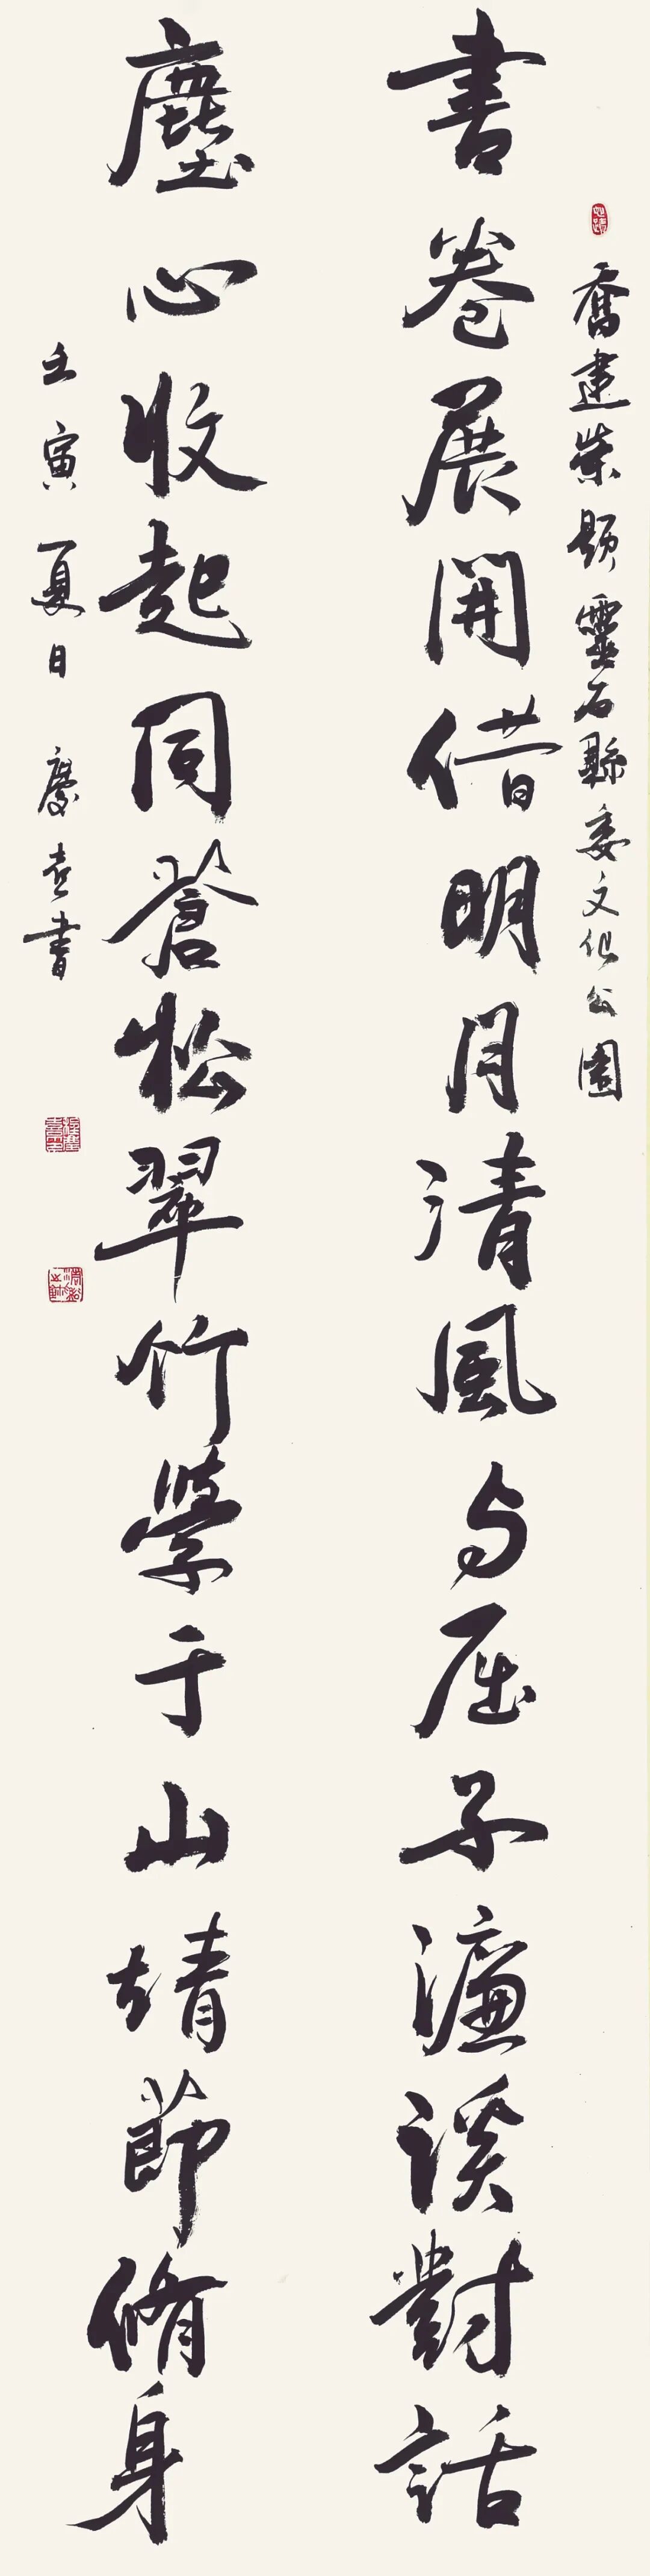 書卷展開借明月清風与屈子濂溪對話
塵心收起同蒼松翠竹學于山靖節脩身
喬建榮題靈石縣委文化公園
壬寅夏日慶壹書